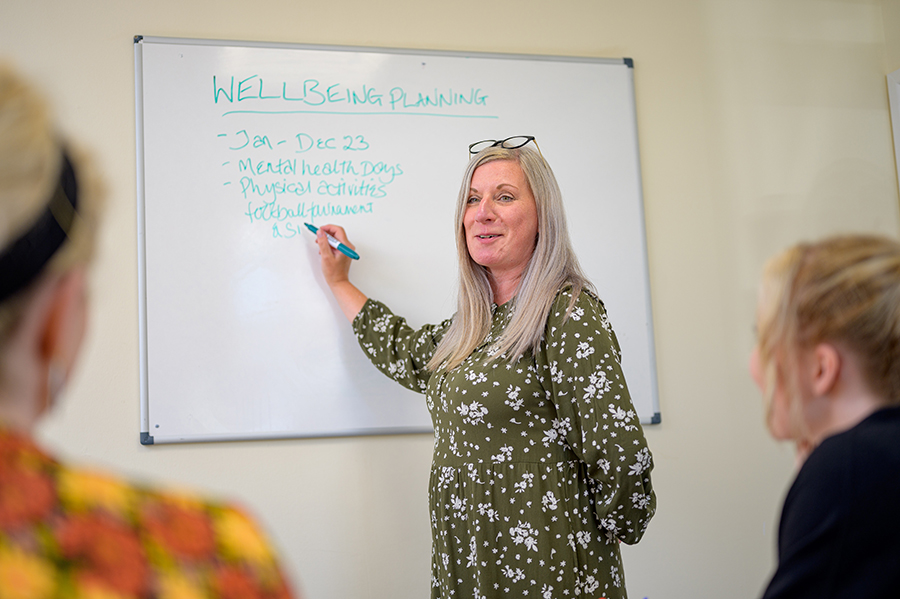 WELLBEING PLANNING
- Jan - Dec 23
- Mental health Days
- Physical activities
football